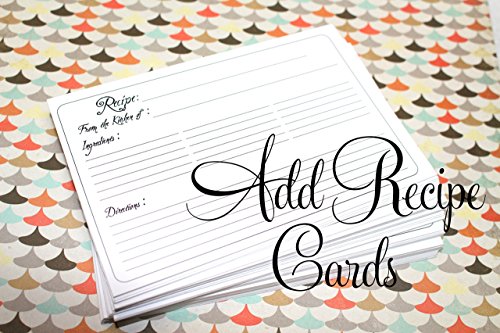 Recipe:
From the Kitchen of :
Ingredients :
Directions :
Add Recipe
Cards